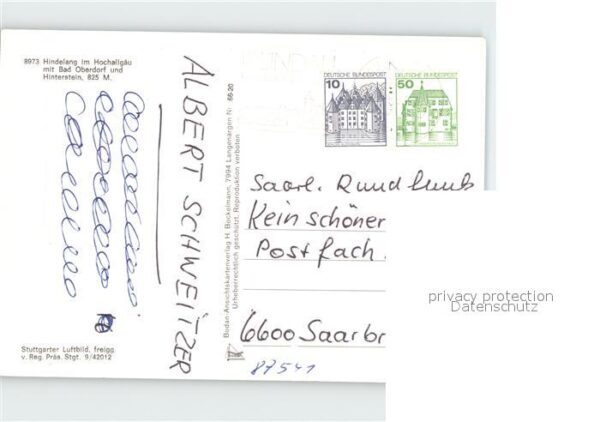 8973 Hindelang im Hochallgäu
mit Bad Oberdorf und
Hinterstein, 825 M.
ALBERT SCHWEITZER
Stuttgarter Luftbild, freigg.
v. Reg. Präs. Stgt. 9/42012
Bodan-Ansichtskartenverlag H. Bockelmann, 7994 Langenargen Nr. 66-20
Urheberrechtlich geschützt, Reproduktion verboten
10
DEUTSCHE BUNDESPOST
50
DEUTSCHE BUNDESPOST
Saarl. Rundfunk
Kein schöner
Postfach
6600 Saarbr
87541
privacy protection
Datenschutz